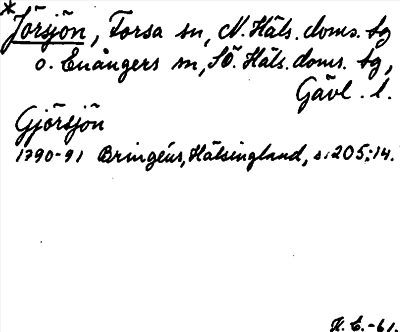 *Jörsjön, Forsa sn, N. Häls. doms. sg
o. Enångers sn, Sö. Häls. doms. sg,
Gävl. l.
Gjörsjön
1790-91 Bringéus, Hälsingland, s. 205:14.
K.E.-61.